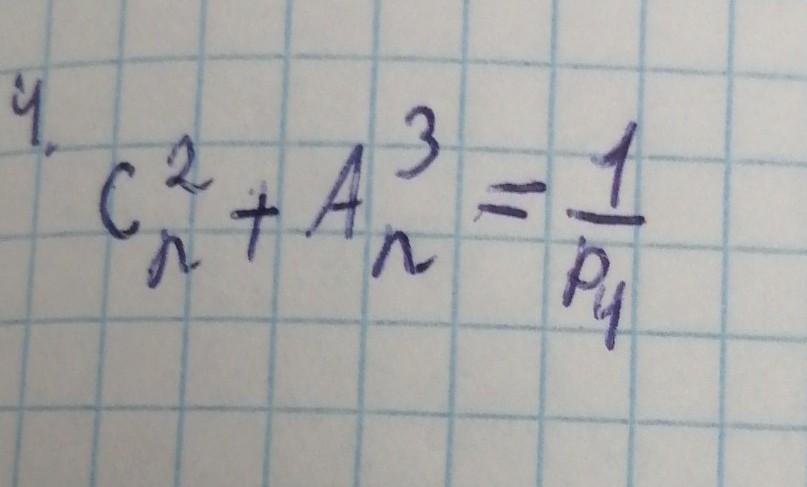 4. C_n^2 + A_n^3 = \frac{1}{P_4}